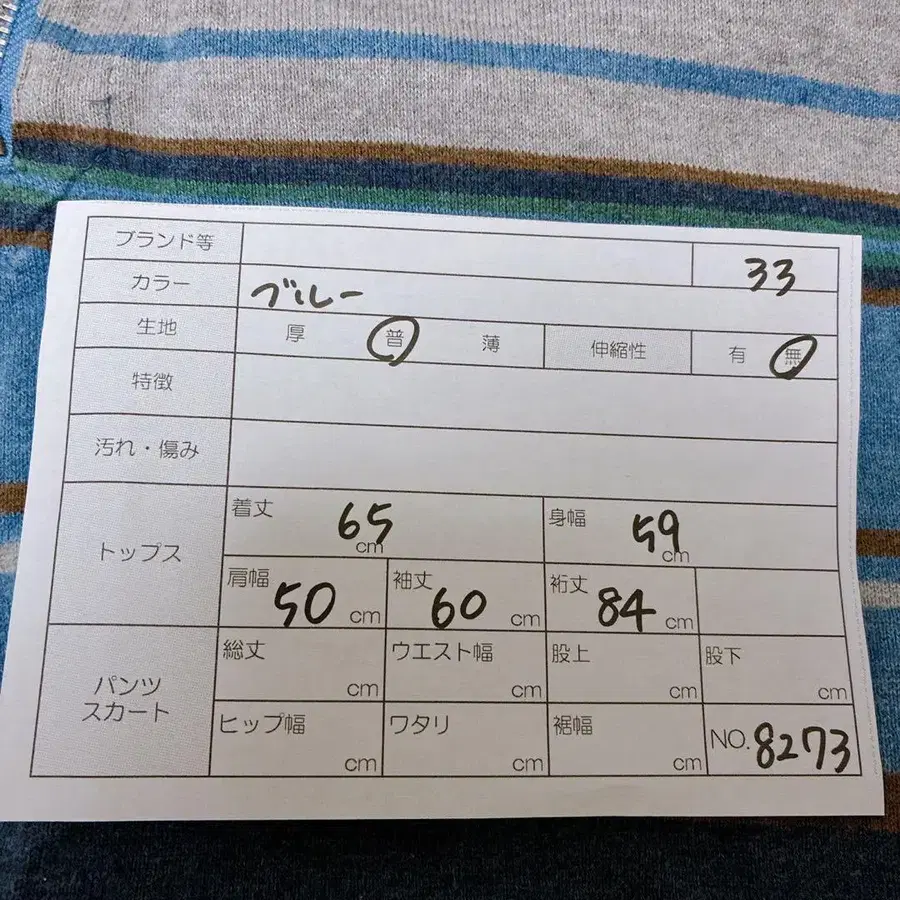 ブランド等 33
カラー ブルー
生地 厚 普 薄 伸縮性 有 無
特徴
汚れ・傷み
トップス
着丈 65 cm 身幅 59 cm
肩幅 50 cm 袖丈 60 cm 裄丈 84 cm
パンツ
スカート
総丈 cm ウエスト幅 cm 股上 cm 股下 cm
ヒップ幅 cm ワタリ cm 裾幅 cm NO. 8273